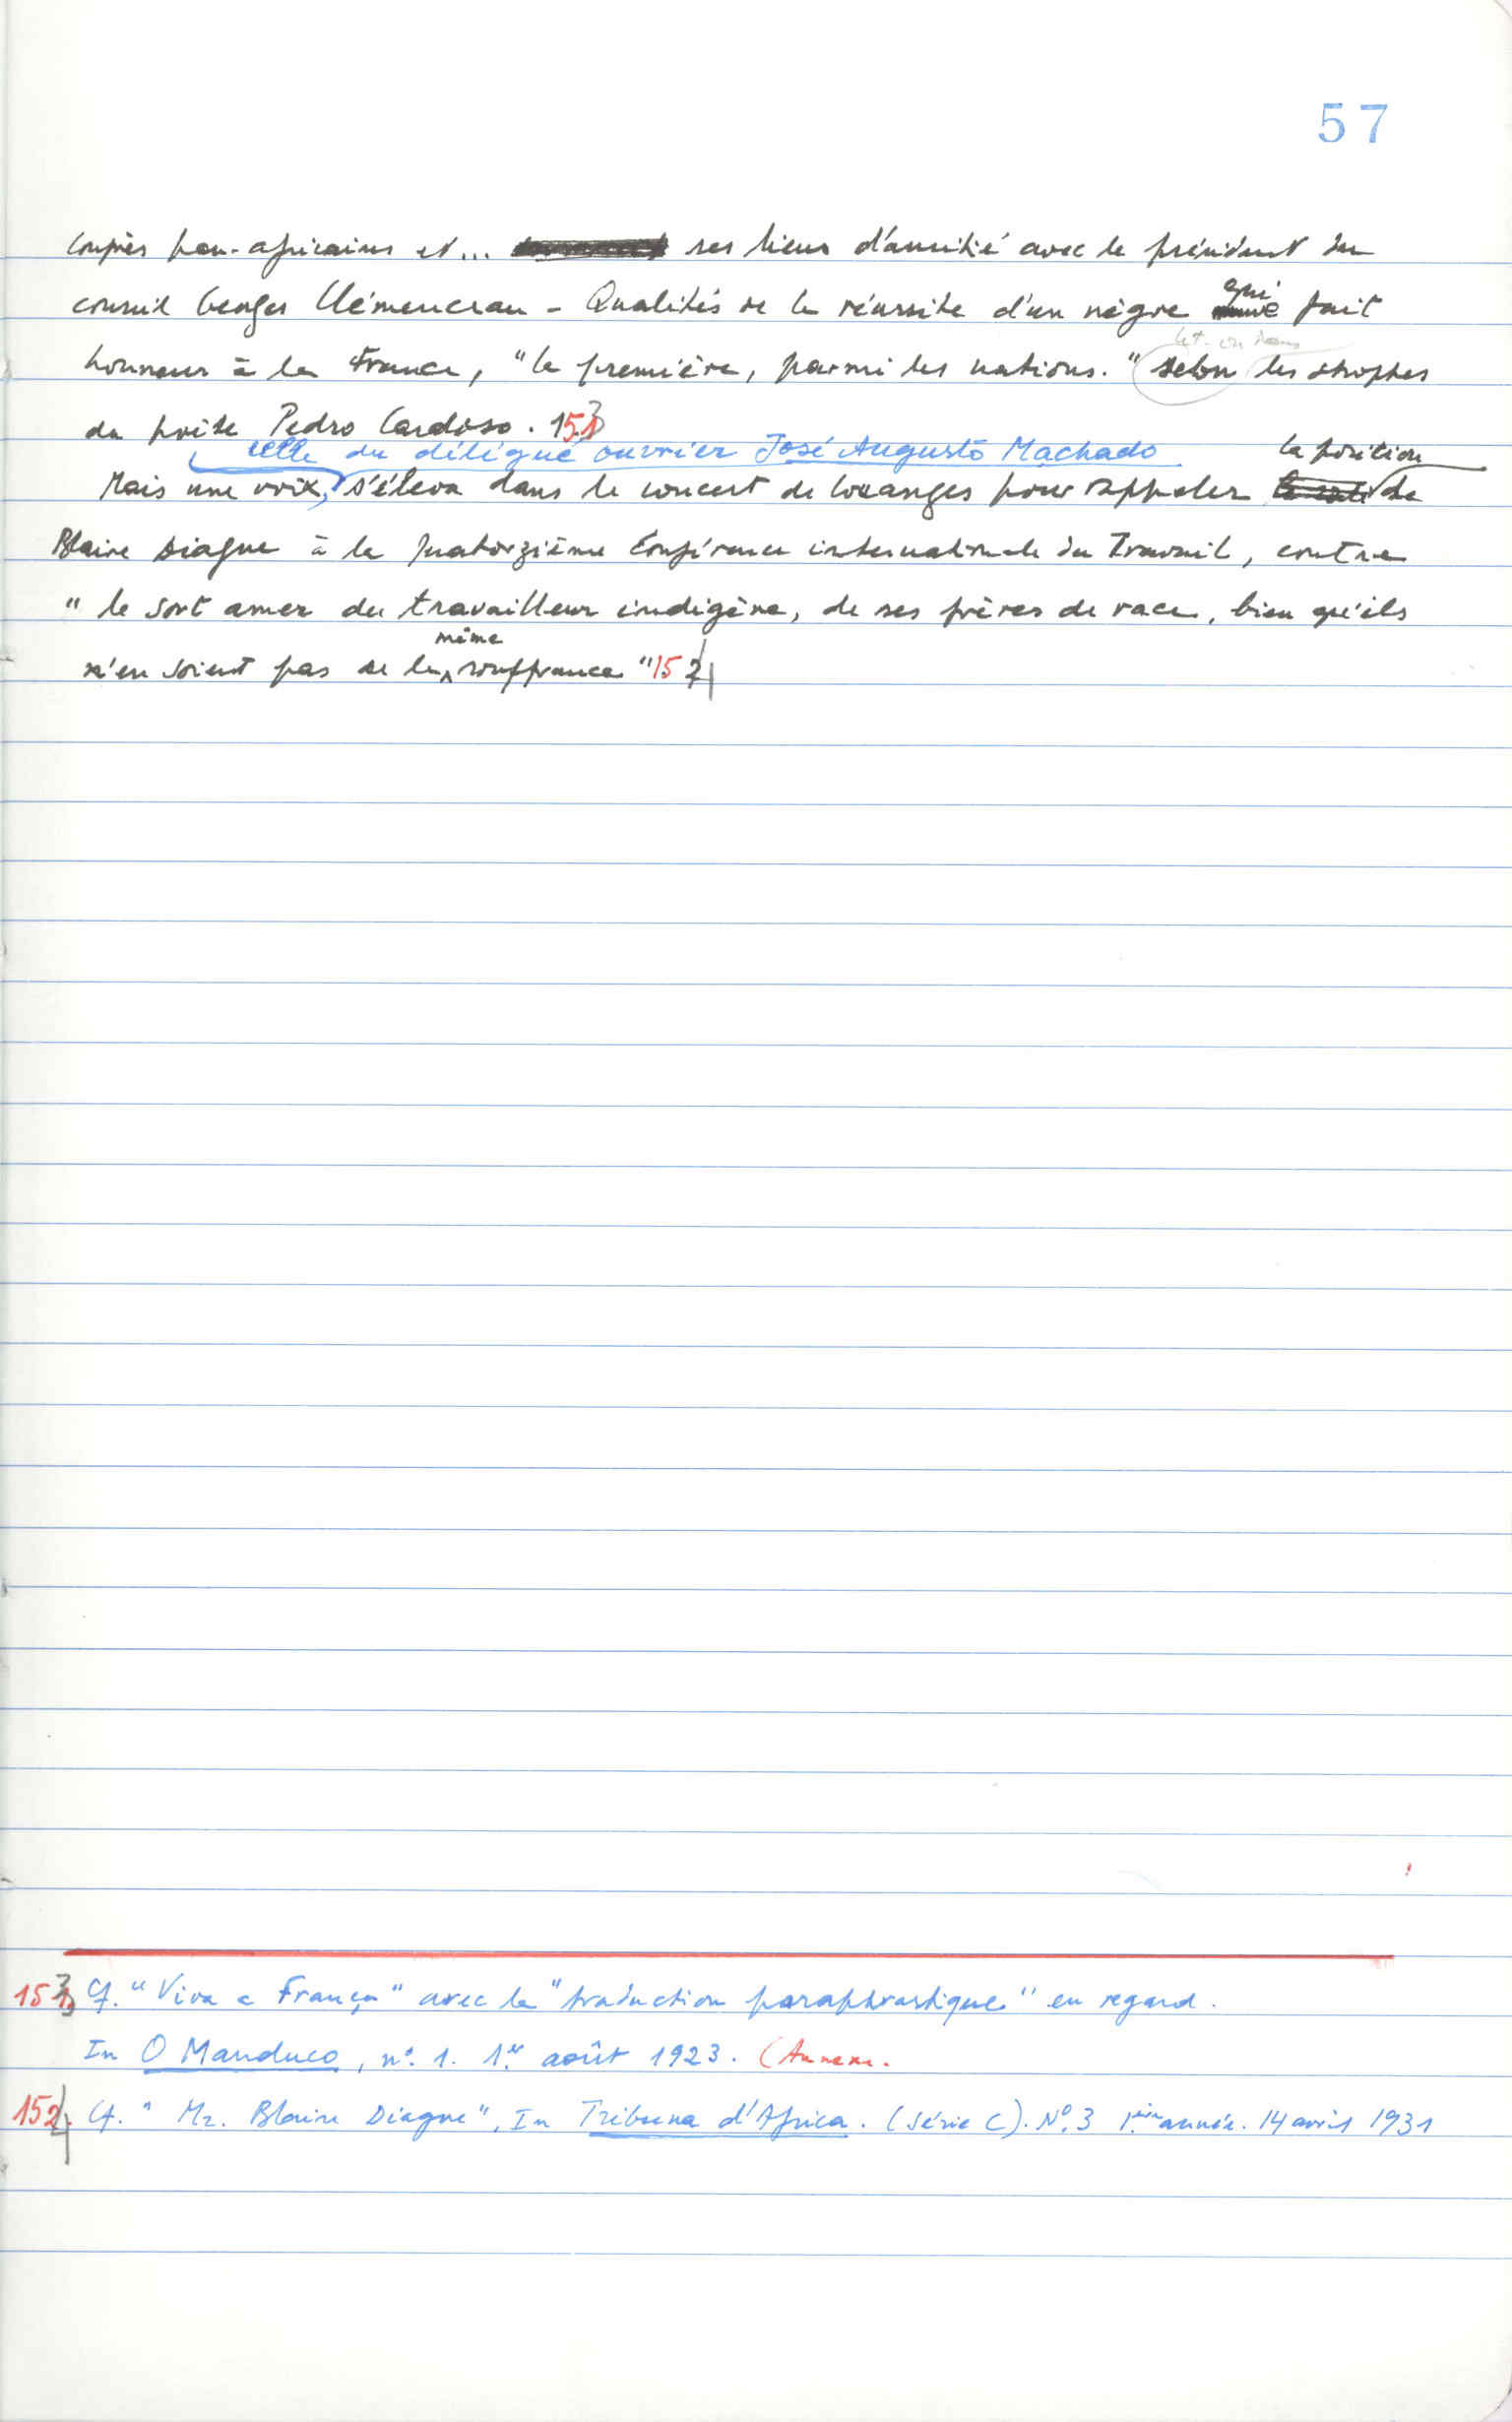 57
congrès pan-africains et... ses liens d'amitié avec le président du
conseil Georges Clémenceau - Qualités de la réussite d'un nègre qui fait
honneur à la France, "la première, parmi les nations." selon les strophes
du poète Pedro Cardoso. 153
celle du délégué ouvrier José Augusto Machado la position
Mais une voix, s'éleva dans le concert de louanges pour rappeler de
Blaise Diagne à la quatorzième Conférence internationale du Travail, contre
"le sort amer du travailleur indigène, de ses frères de race, bien qu'ils
même
n'en soient pas de la souffrance" 154
153 Cf. "Viva a França" avec la "traduction paraphrastique" en regard.
In O Manduco, nº. 1. 1er août 1923. (Annexe.
154 Cf. "Mr. Blaise Diagne", In Tribuna d'Africa. (Série C). Nº. 3 1ère année. 14 avril 1931